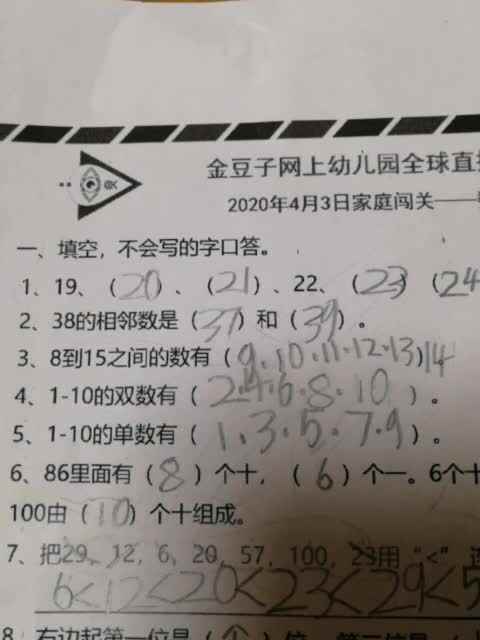 金豆子网上幼儿园全球直
2020年4月3日家庭闯关——
一、填空，不会写的字口答。
1、19、（20）、（21）、22、（23）（24
2、38的相邻数是（37）和（39）。
3、8到15之间的数有（9、10、11、12、13）14
4、1-10的双数有（2、4、6、8、10）。
5、1-10的单数有（1、3、5、7、9）。
6、86里面有（8）个十，（6）个一。6个十
100由（10）个十组成。
7、把29、12，6，20，57，100，23用“<”
6<12<20<23<29<5
8、右边起第一位是（个）位，第二位是